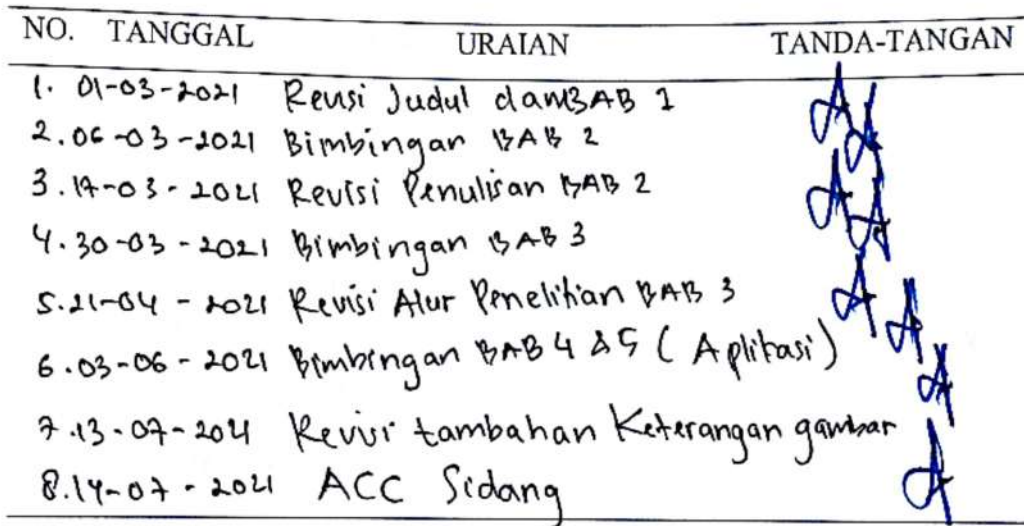 NO. TANGGAL URAIAN TANDA-TANGAN
1. 01-03-2021 Revisi Judul dan BAB 1
2. 06-03-2021 Bimbingan BAB 2
3. 17-03-2021 Revisi Penulisan BAB 2
4. 30-03-2021 Bimbingan BAB 3
5. 21-04-2021 Revisi Alur Penelitian BAB 3
6. 03-06-2021 Bimbingan BAB 4 & 5 (Aplikasi)
7. 13-07-2021 Revisi tambahan Keterangan gambar
8. 14-07-2021 ACC Sidang